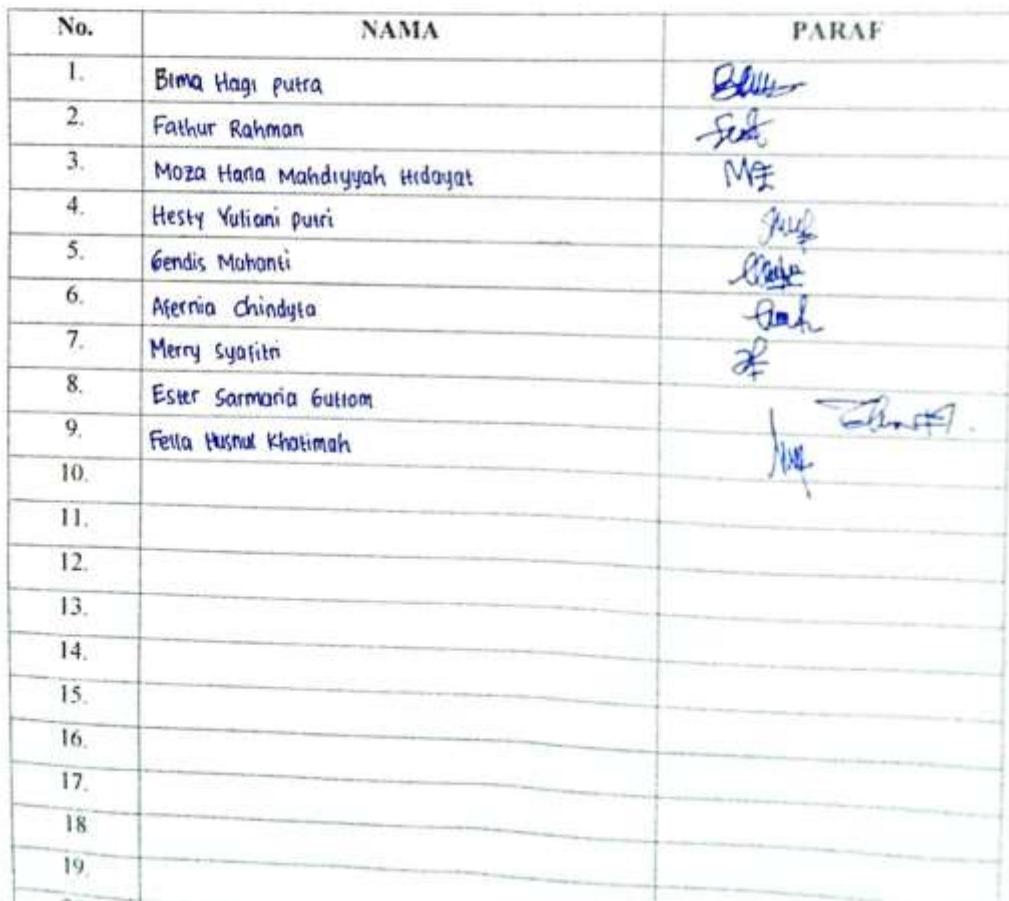 No. NAMA PARAF
1. Bima Hagi putra
2. Fathur Rahman
3. Moza Hana Mahdiyyah Hidayat
4. Hesty Yuliani putri
5. Gendis Mahanti
6. Afernia Chindyta
7. Merry Syafitri
8. Ester Sarmaria Gultom
9. Fella Husnul Khotimah
10.
11.
12.
13.
14.
15.
16.
17.
18
19.